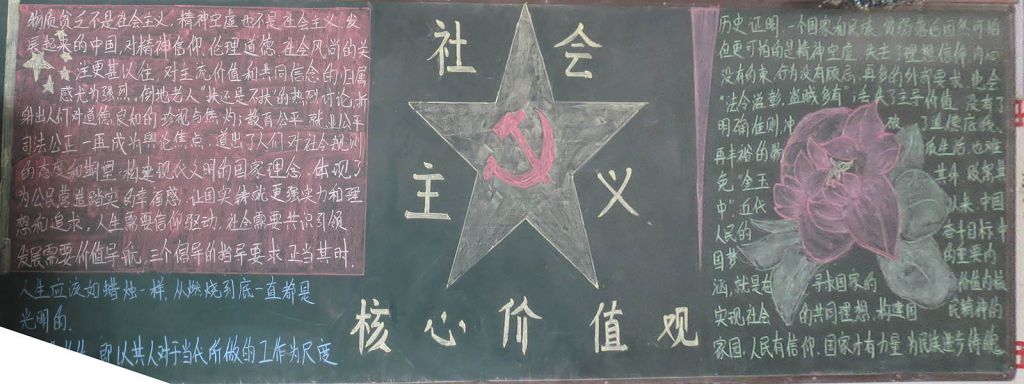 物质贫乏不是社会主义，精神空虚也不是社会主义.发
展起来的中国，对精神信仰.伦理道德.社会风尚的关
注更甚以往，对主流价值和共同信念的归属
感尤为强烈，倒地老人“扶还是不扶”的热烈讨论，折
射出人们对道德良知的珍视与焦灼；教育公平.就业公平
司法公正一再成为舆论焦点，道出了人们对社会规则
的态度和期望；构建现代文明的国家理念.体现了
为公民营造踏实的幸福感.让国实铸就更强实力和理
想和追求，人生需要信仰驱动，社会需要共识引领
发展需要价值导航，三个倡导的指导要求正当其时.
人生应该如蜡烛一样，从燃烧到底一直都是
光明的.
即以其人对于当代所做的工作为尺度
社会
主义
核心价值观
历史证明，一个国家和民族，贫弱落后固然可怕
但更可怕的是精神空虚.失去了理想信仰，内心
没有约束，行为没有顾忌，再多的外部要求，也会
“法令滋彰，盗贼多有”；丧失了主导价值，没有了
明确准则，冲 破 了道德底线，
再丰裕的物 质生活，也难
免“金玉 其外，败絮其
中”.近代 以来，中国
人民的 奋斗目标中
国梦 的重要内
涵，就是在 寻求国家的 价值内核
实现社会 的共同理想，构建国 民精神的
家园.人民有信仰，国家才有力量